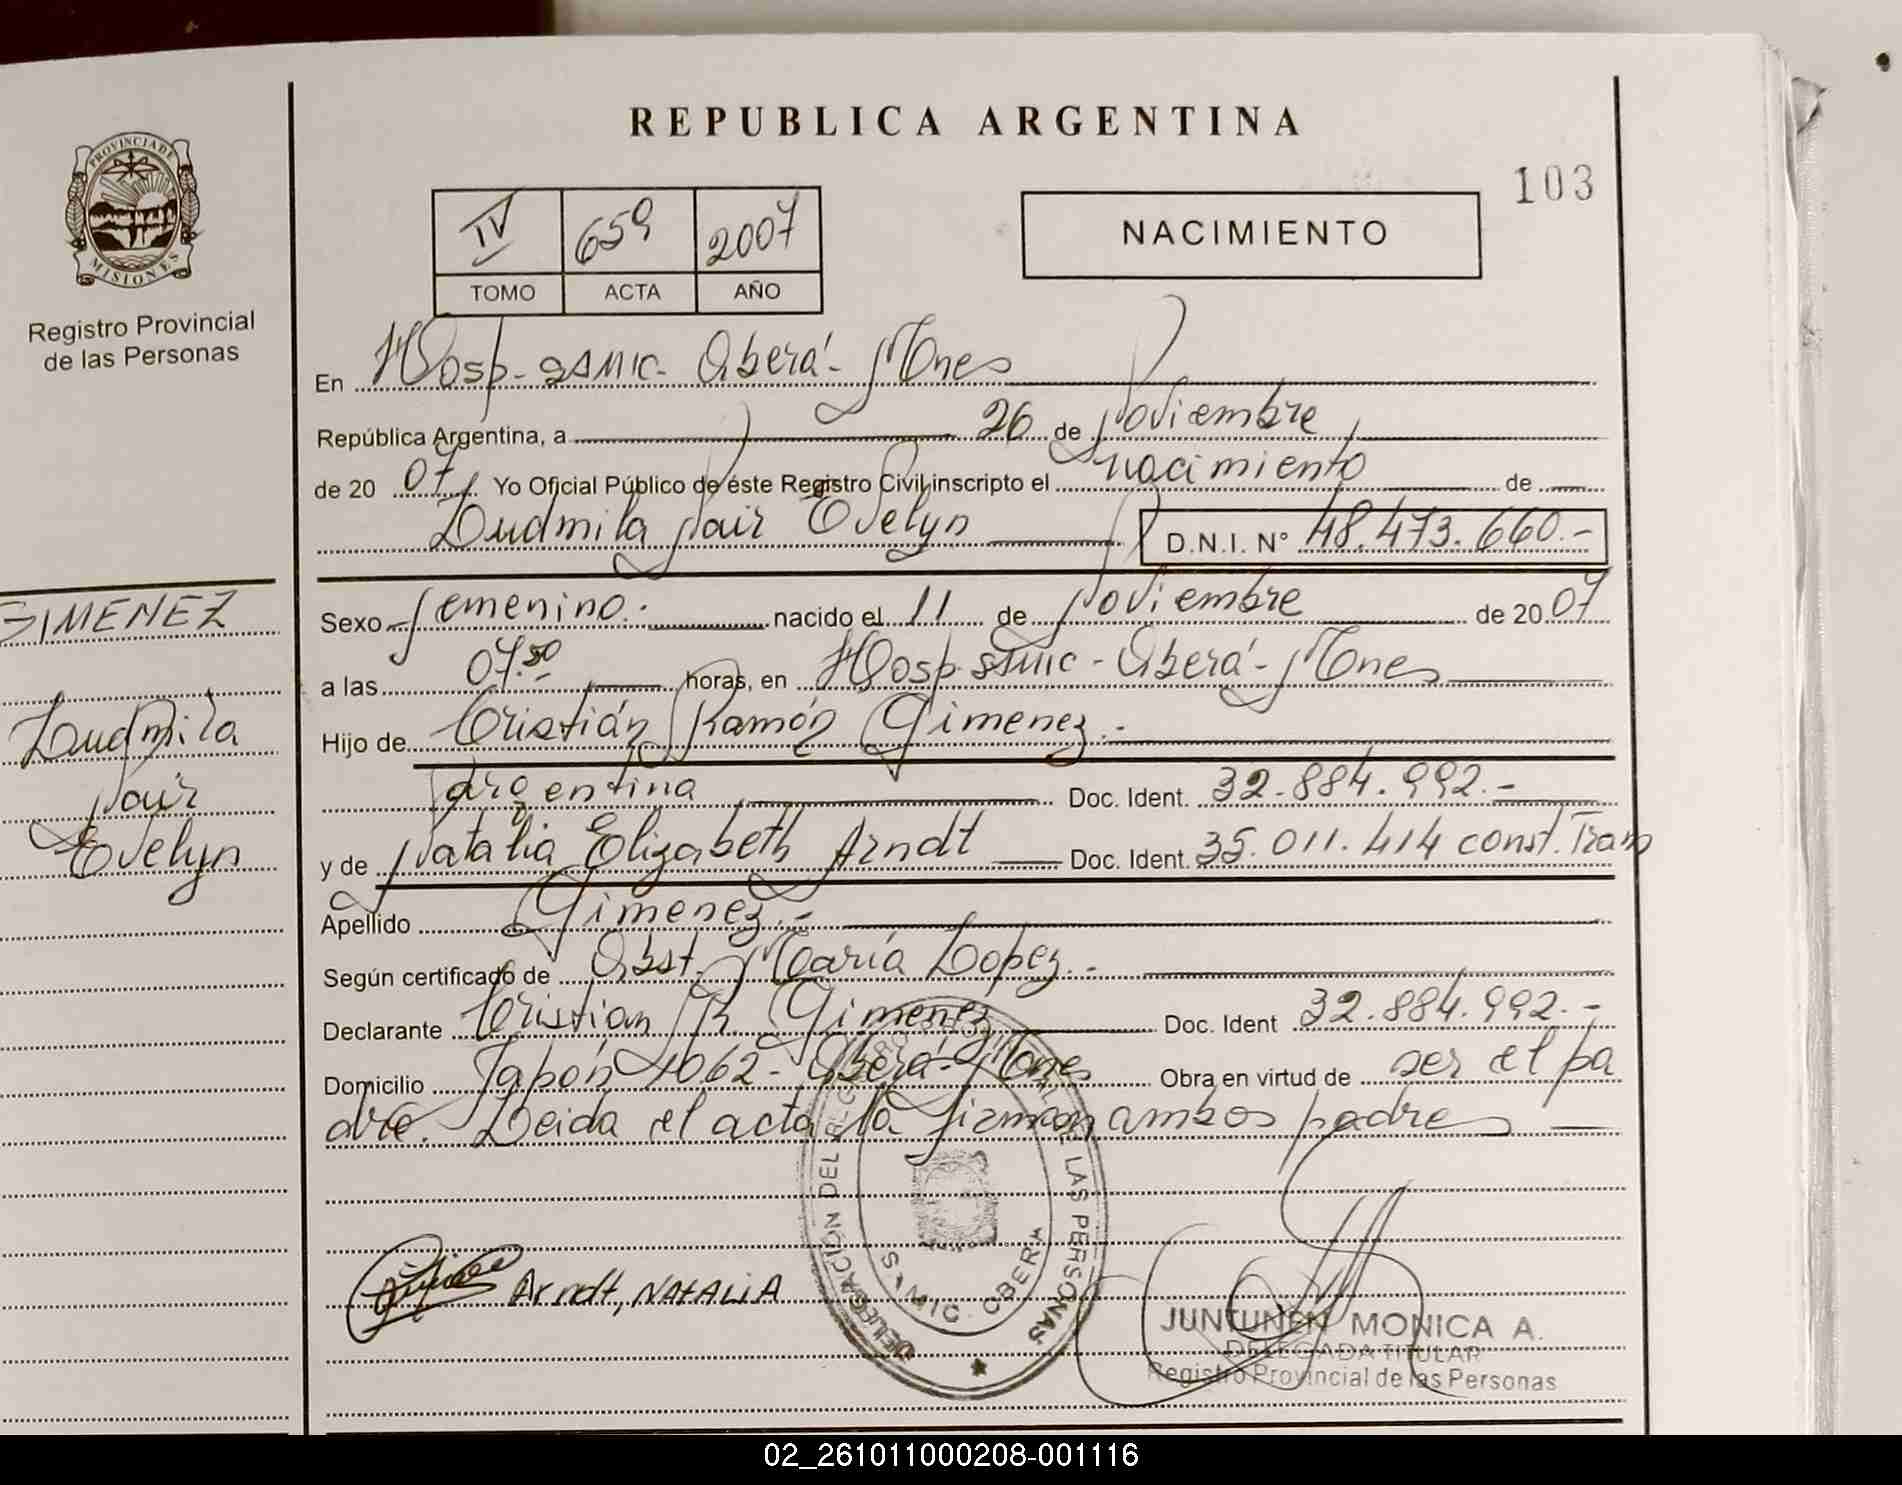 REPUBLICA ARGENTINA
103
PROVINCIA DE
MISIONES
Registro Provincial
de las Personas
IV 659 2007
TOMO ACTA AÑO
NACIMIENTO
En Hosp- SAMIC- Oberá- Mnes
República Argentina, a 26 de Noviembre
de 20 07 Yo Oficial Público de éste Registro Civil inscripto el nacimiento de
Ludmila Nair Evelyn D.N.I. N° 48.473.660.-
GIMENEZ
Ludmila
Nair
Evelyn
Sexo femenino. nacido el 11 de Noviembre de 20 07
a las 07.50 horas, en Hosp. SAMIC - Oberá - Mnes
Hijo de Cristián Ramón Gimenez.-
Argentina Doc. Ident. 32.884.992.-
y de Natalia Elizabeth Arndt Doc. Ident. 35.011.414 const. Tram
Apellido Gimenez.-
Según certificado de Obst. María Lopez.-
Declarante Cristian R. Gimenez Doc. Ident 32.884.992.-
Domicilio Japón 1062- Oberá- Mnes Obra en virtud de ser el pa
dre. Leida el acta la firman ambos padres
DELEGACIÓN DEL REGISTRO PROVINCIAL DE LAS PERSONAS
SAMIC. OBERA
Arndt, NATALIA
JUNTUNEN MONICA A.
DELEGADA TITULAR
Registro Provincial de las Personas
02_261011000208-001116